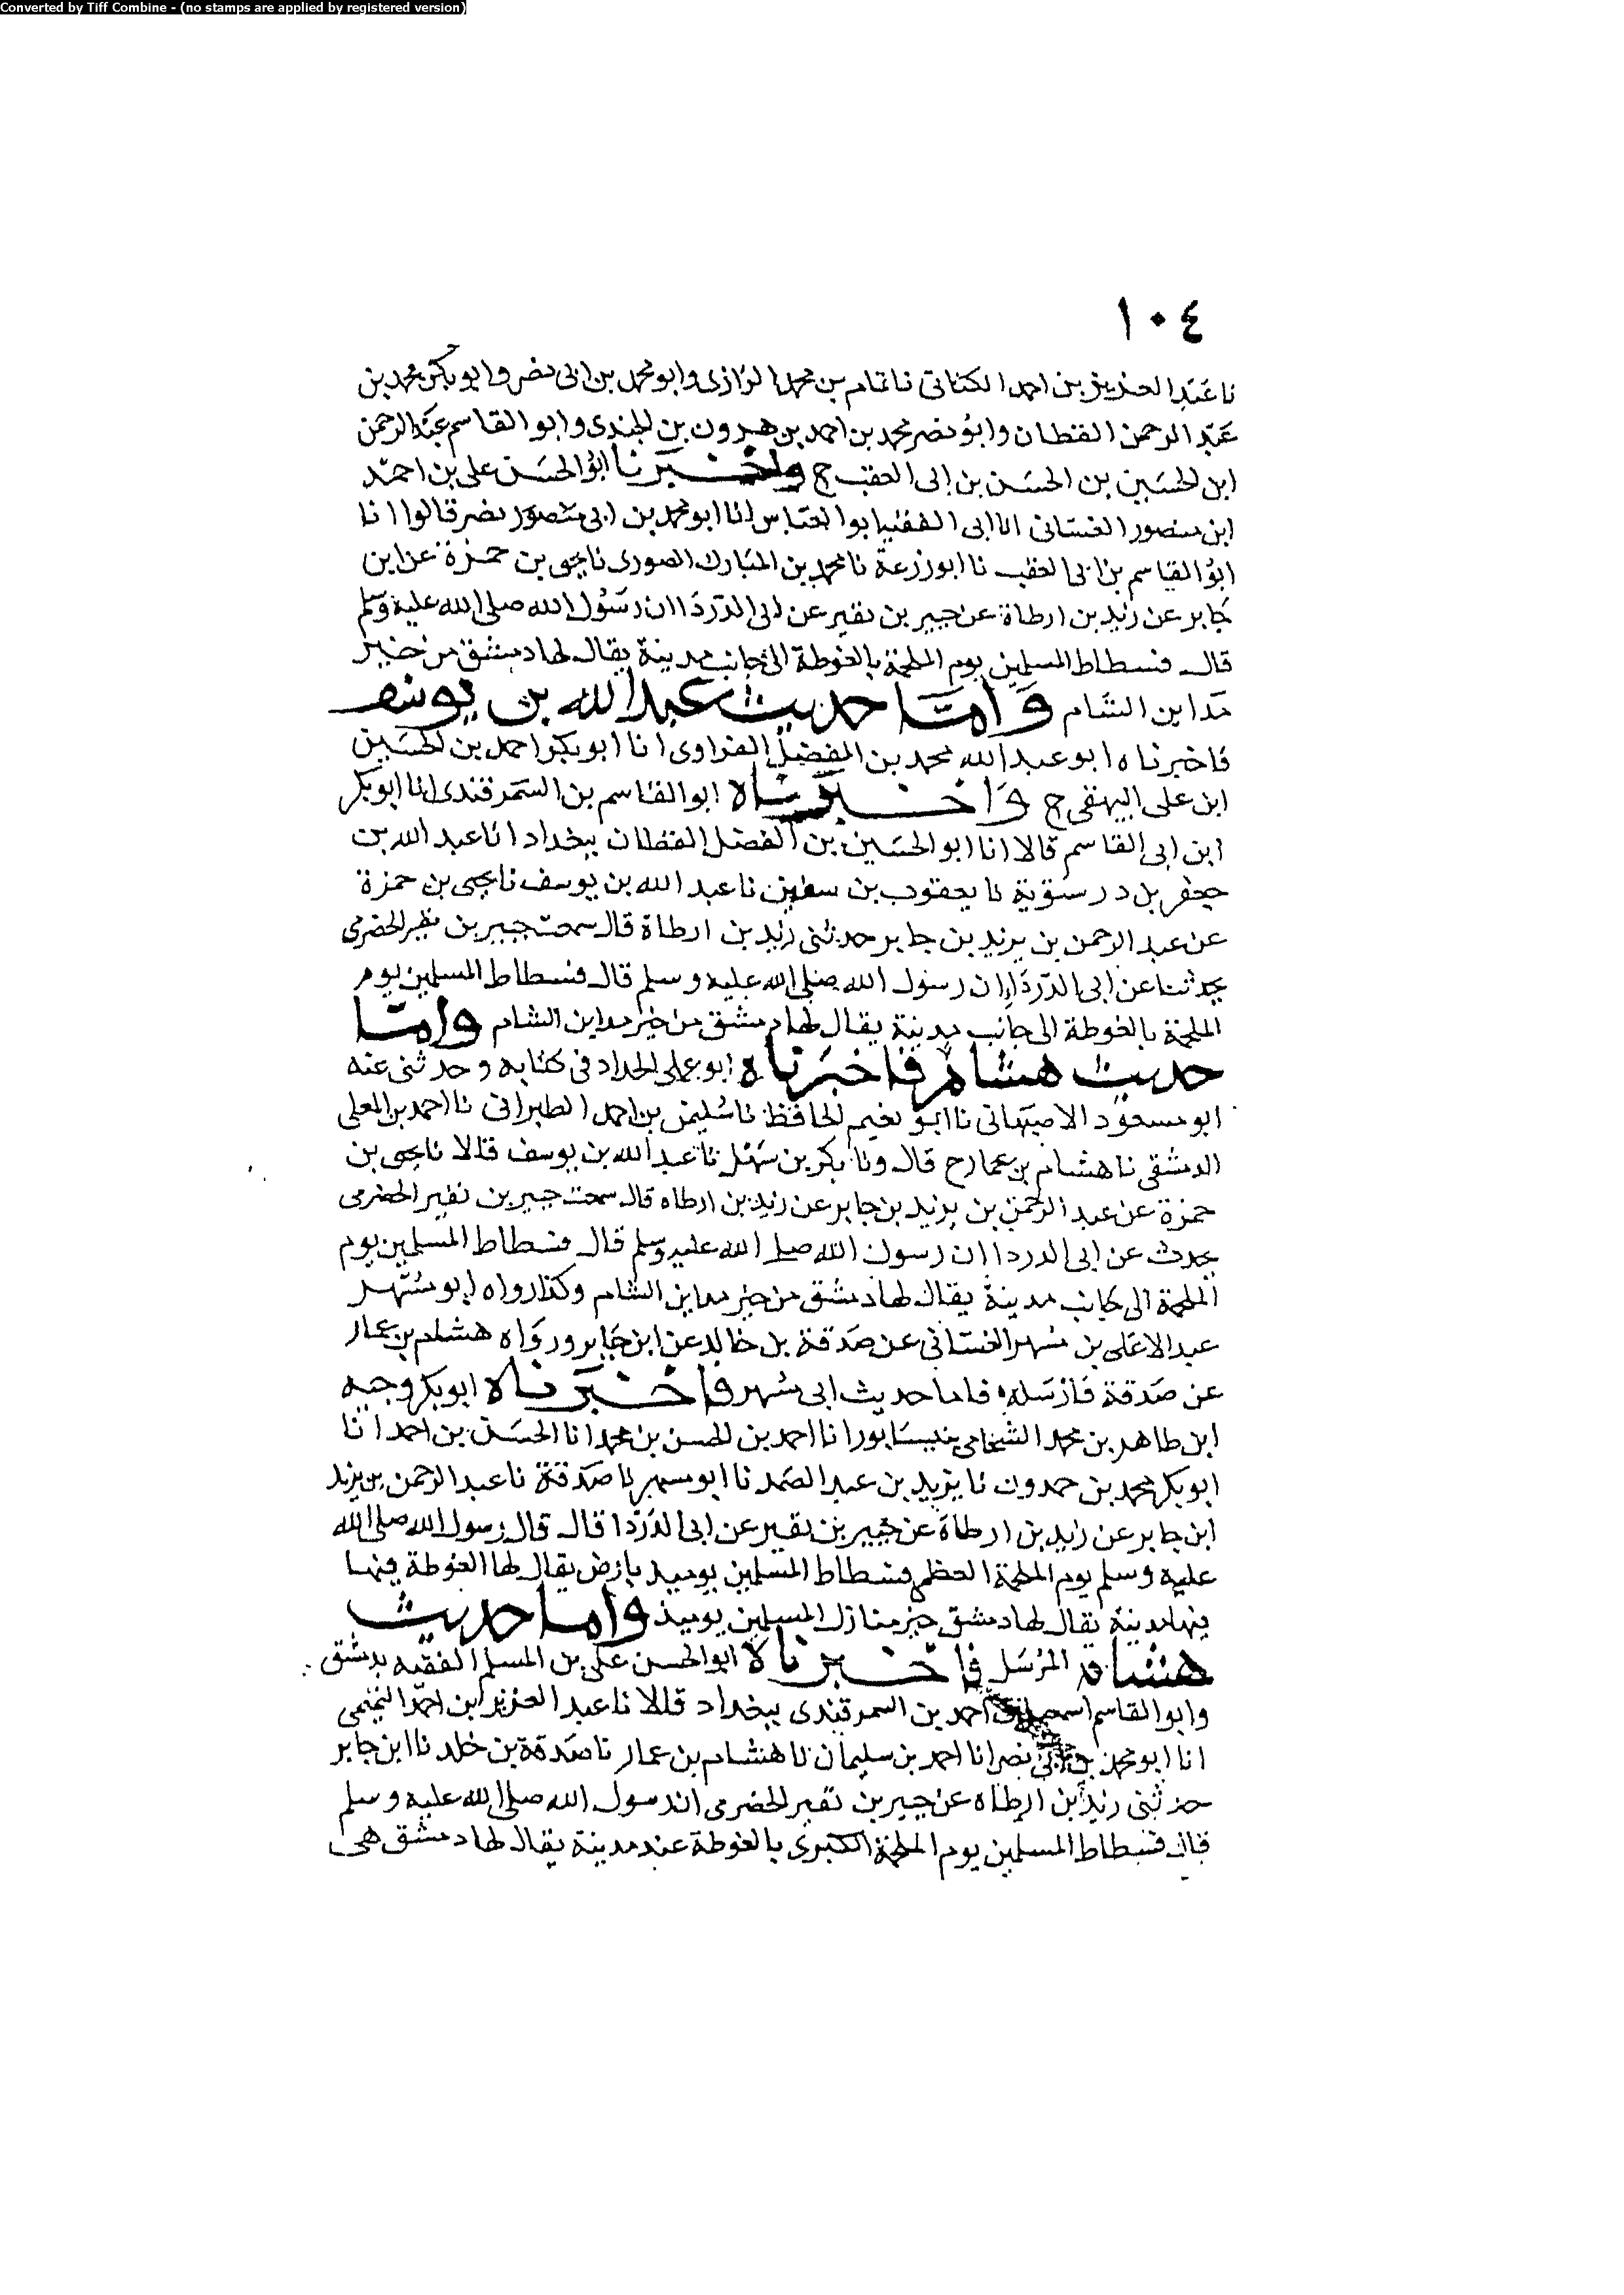 Converted by Tiff Combine - (no stamps are applied by registered version)
١٠٤
نا عبد العزيز بن احمد الكتاني نا تمام بن محمد الرازي وابو محمد بن ابي نصر وابو بكر محمد بن
عبد الرحمن القطان وابو نصر محمد بن احمد بن هرون بن الجندي وابو القاسم عبد الرحمن
ابن الحسين بن الحسن بن ابي العقب ح واخبرنا ابو الحسن علي بن احمد
ابن منصور الغساني انا ابي الفقيه ابو العباس انا ابو محمد بن ابي نصر قالوا انا
ابو القاسم بن ابي العقب نا ابو زرعة نا محمد بن المبارك الصوري نا يحيى بن حمزة عن ابن
جابر عن زيد بن ارطاة عن جبير بن نفير عن ابي الدردا ان رسول الله صلى الله عليه وسلم
قال فسطاط المسلمين يوم الملحمة بالغوطة الى جانب مدينة يقال لها دمشق من خير
مداين الشام واما حديث عبد الله بن يوسف
فاخبرناه ابو عبد الله محمد بن الفضل الفراوي انا ابو بكر احمد بن الحسين
ابن علي البيهقي ح واخبرناه ابو القاسم بن السمرقندي انا ابو بكر
ابن ابي القاسم قالا انا ابو الحسين بن الفضل القطان ببغداد انا عبد الله بن
جعفر بن درستوية نا يعقوب بن سفين نا عبد الله بن يوسف نا يحيى بن حمزة
عن عبد الرحمن بن يزيد بن جابر حدثني زيد بن ارطاة قال سمعت جبير بن نفير الحضرمي
يحدثنا عن ابي الدردا ان رسول الله صلى الله عليه وسلم قال فسطاط المسلمين يوم
الملحمة بالغوطة الى جانب مدينة يقال لها دمشق من خير مداين الشام واما
حديث هشام فاخبرناه ابو علي الحداد في كتابه وحدثني عنه
ابو مسعود الاصبهاني نا ابو نعيم الحافظ نا سليمن بن احمد الطبراني نا احمد بن المعلى
الدمشقي نا هشام بن عمار ح قال ونا بكر بن سهل نا عبد الله بن يوسف قالا نا يحيى بن
حمزة عن عبد الرحمن بن يزيد بن جابر عن زيد بن ارطاه قال سمعت جبير بن نفير الحضرمي
يحدث عن ابي الدردا ان رسول الله صلى الله عليه وسلم قال فسطاط المسلمين يوم
الملحمة الى جانب مدينة يقال لها دمشق من خير مداين الشام وكذا رواه ابو مسهر
عبد الاعلى بن مسهر الغساني عن صدقة بن خالد عن ابن جابر ورواه هشام بن عمار
عن صدقة فارسله فاما حديث ابي مسهر فاخبرناه ابو بكر وجيه
ابن طاهر بن محمد الشحامي بنيسابور انا احمد بن الحسن بن محمد انا الحسن بن احمد انا
ابو بكر محمد بن حمدون نا يزيد بن عبد الصمد نا ابو مسهر نا صدقة نا عبد الرحمن بن يزيد
ابن جابر عن زيد بن ارطاة عن جبير بن نفير عن ابي الدردا قال قال رسول الله صلى الله
عليه وسلم يوم الملحمة العظمى فسطاط المسلمين يوميذ بارض يقال لها الغوطة فيها
فيها مدينة يقال لها دمشق خير منازل المسلمين يوميذ واما حديث
هشام المرسل فاخبرناه ابو الحسن علي بن المسلم الفقيه بدمشق
وابو القاسم اسمعيل بن احمد بن السمرقندي ببغداد قالا نا عبد العزيز ابن احمد التميمي
انا ابو محمد بن ابي نصر انا احمد بن سليمان نا هشام بن عمار نا صدقة بن خلد نا ابن جابر
حدثني زيد بن ارطاه عن جبير بن نفير الحضرمي ان رسول الله صلى الله عليه وسلم
قال فسطاط المسلمين يوم الملحمة الكبرى بالغوطة عند مدينة يقال لها دمشق هي